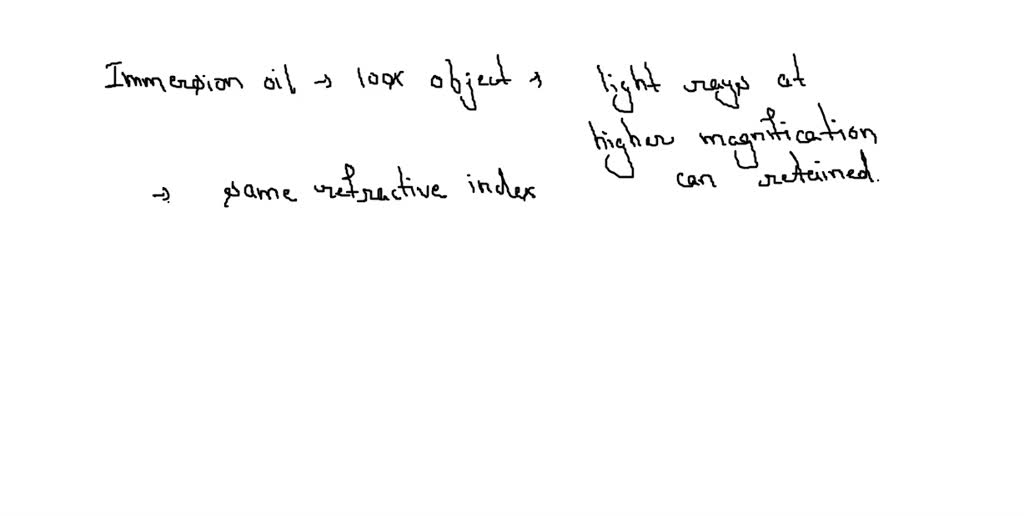 Immersion oil → 100x object → light rays at
higher magnification
→ same refractive index can retained.